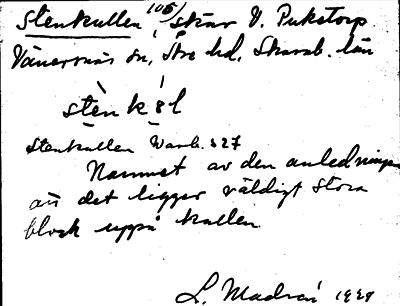 Stenkullen (105), skär V. Puketorp
Vänersnäs sn, Åse hd. Skarab. län
stènkól
Stenkullen Wanb. 327
Namnet av den anledningen
att det ligger väldigt stora
block uppå kullen
L. Modin 1929